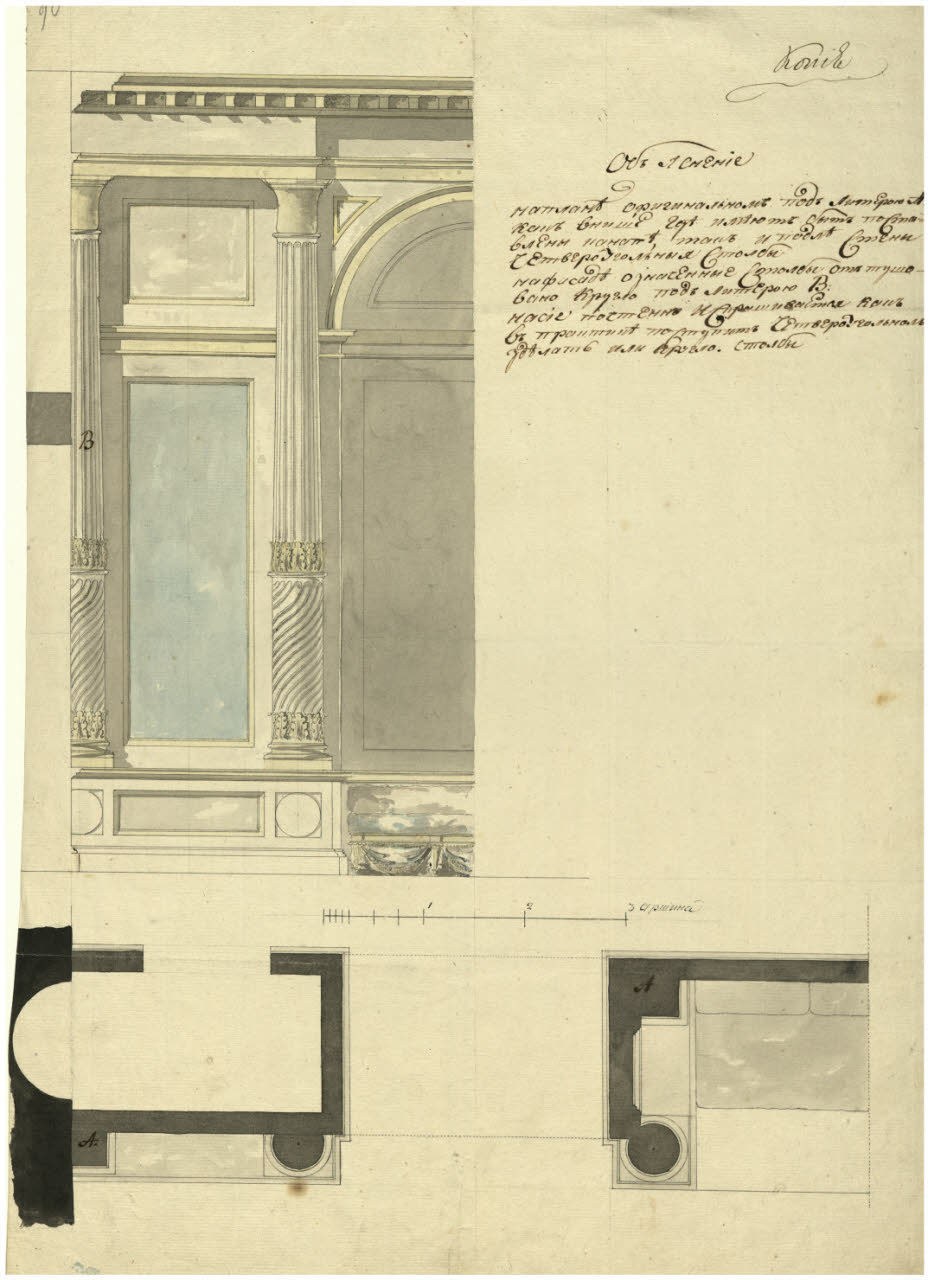 90
Копія
Объясненіе
напланѣ оригинальномъ подъ Литерою А
какъ внише гдѣ имѣютъ быть поста-
влены канапѣ, такъ и подлѣ Стены
Четвероугольныя Столбы
нафасадѣ означенные Столбы оттушо-
вано кругло подъ Литерою В:
насіе постенно Испрашивается какъ
въ практикѣ поступить Четвероугольны
здѣлать или кругло. столбы
В
1 2 3 аршина
А
А.